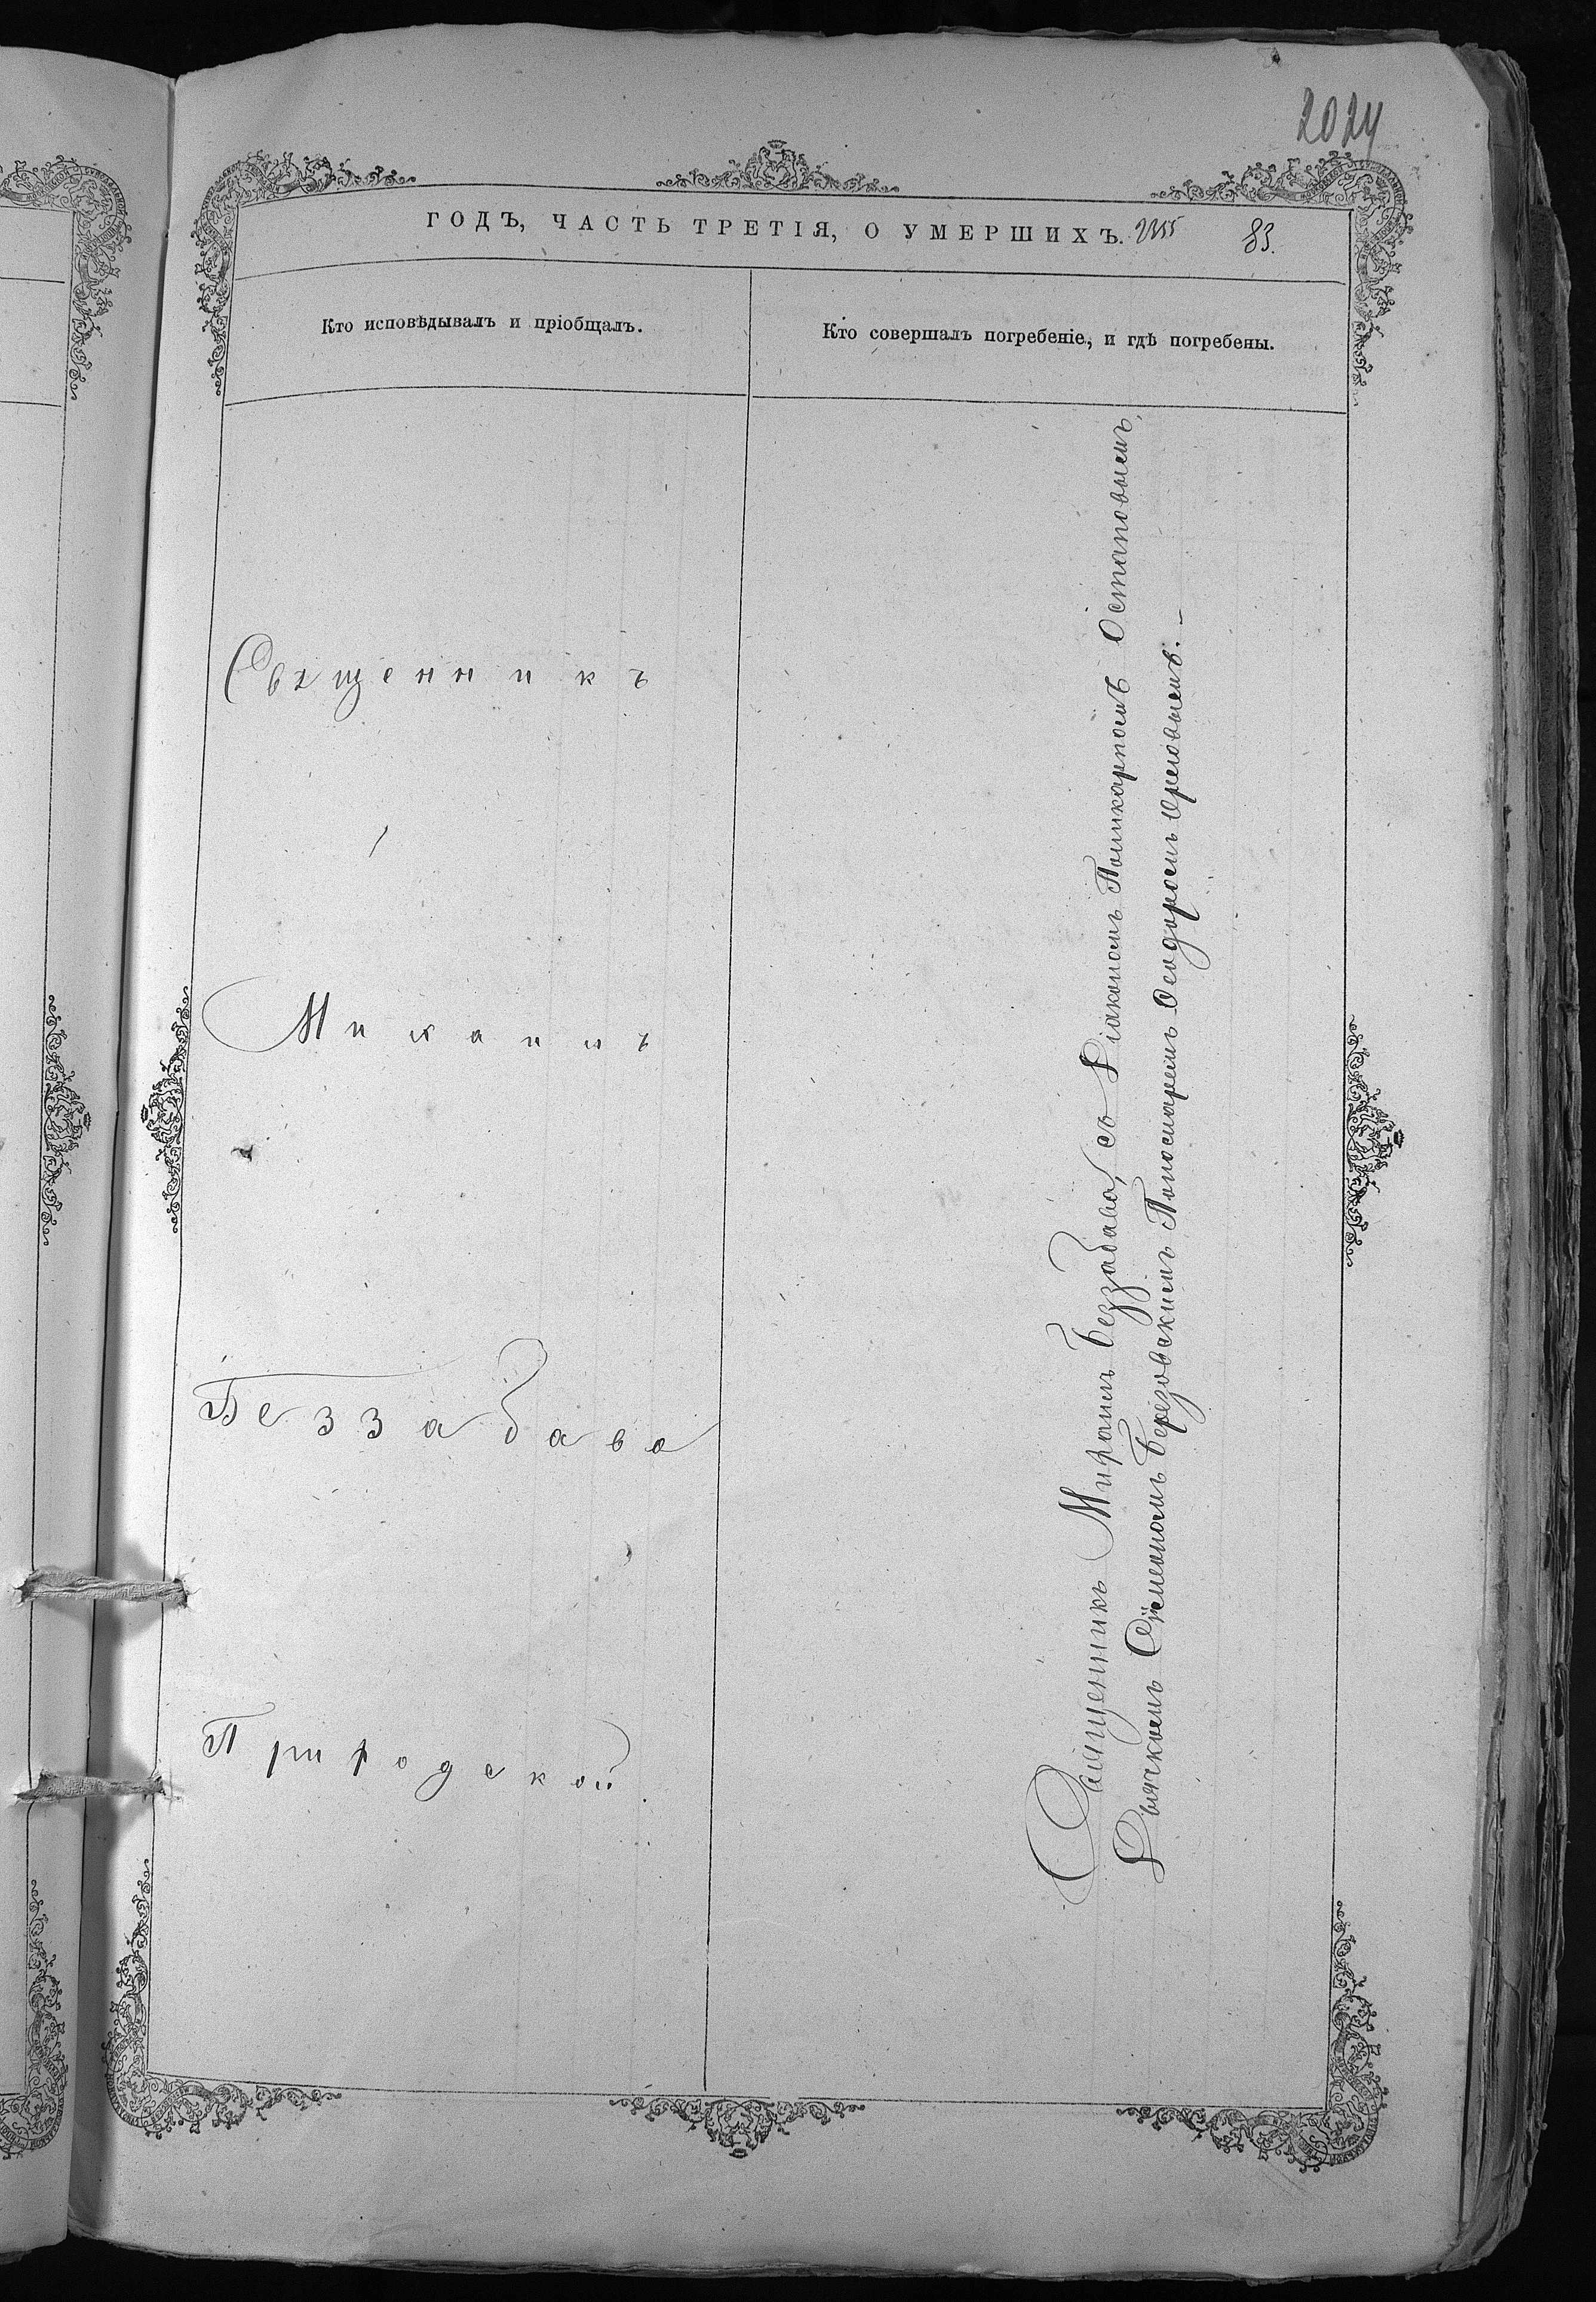 2024
ГОДЪ, ЧАСТЬ ТРЕТІЯ, О УМЕРШИХЪ. 2355 83.
Кто исповѣдывалъ и пріобщалъ.
Кто совершалъ погребеніе, и гдѣ погребены.
Священникъ
Михаилъ
Беззабава
Приходской
Священникъ Миронъ Беззабава, съ Діакономъ Поликарпомъ Остаповымъ,
Дьячкомъ Сѵмеономъ Березовскимъ Пономаремъ Ѳеодоромъ